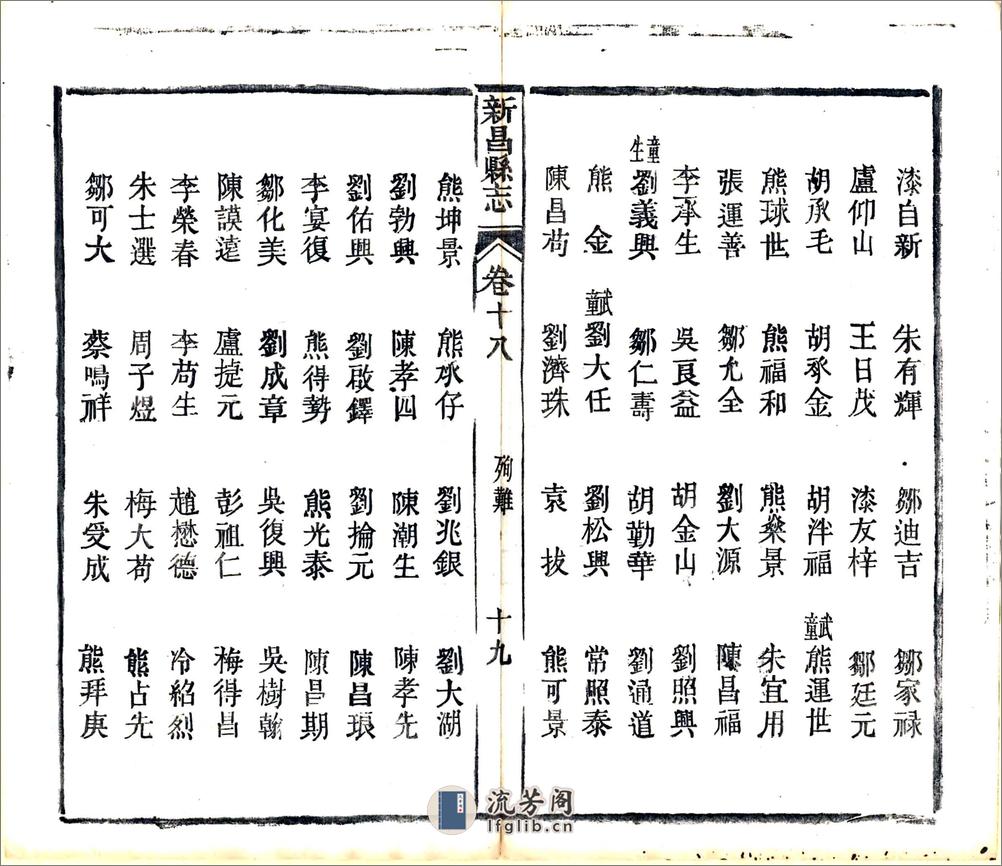 漆自新　朱有輝　鄒迪吉　鄒家祿
盧仰山　王日茂　漆友梓　鄒廷元
胡承毛　胡承金　胡泮福　武童熊運世
熊球世　熊福和　熊燊景　朱宜用
張運善　鄒允全　劉大源　陳昌福
李承生　吳良益　胡金山　劉照興
童生劉義興　鄒仁壽　胡勤華　劉通道
熊　金　武童劉大任　劉松興　常照泰
陳昌茍　劉濟珠　袁　拔　熊可景
新昌縣志　卷十八　殉難　十九
熊坤景　熊承仔　劉兆銀　劉大湖
劉勃興　陳孝四　陳潮生　陳孝先
劉佑興　劉啟鐸　劉掄元　陳昌琅
李宴復　熊得勢　熊光泰　陳昌期
鄒化美　劉成章　吳復興　吳樹翰
陳謨遠　盧捷元　彭祖仁　梅得昌
李榮春　李茍生　趙懋德　冷紹烈
朱士選　周子煜　梅大茍　熊占先
鄒可大　蔡鳴祥　朱受成　熊拜庚
流芳阁
lfglib.cn